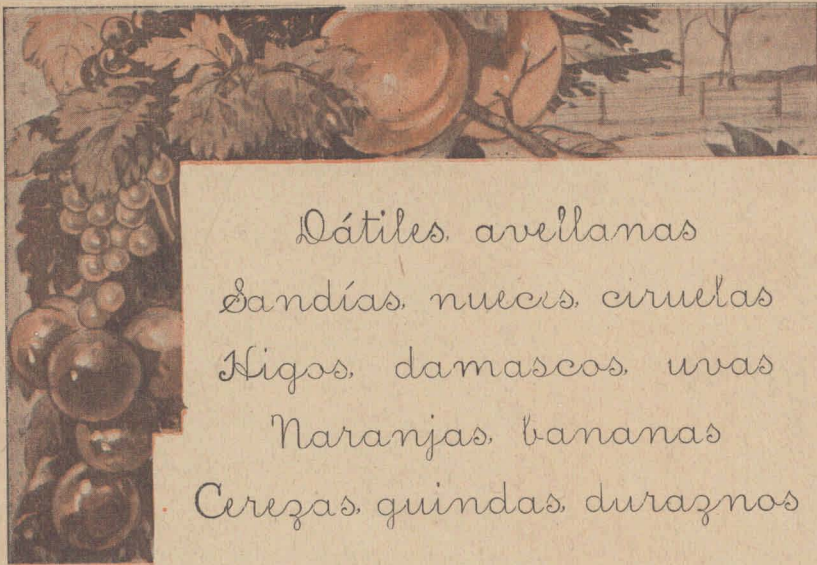 Dátiles, avellanas
Sandías, nueces, ciruelas
Higos, damascos, uvas
Naranjas, bananas
Cerezas, guindas, duraznos